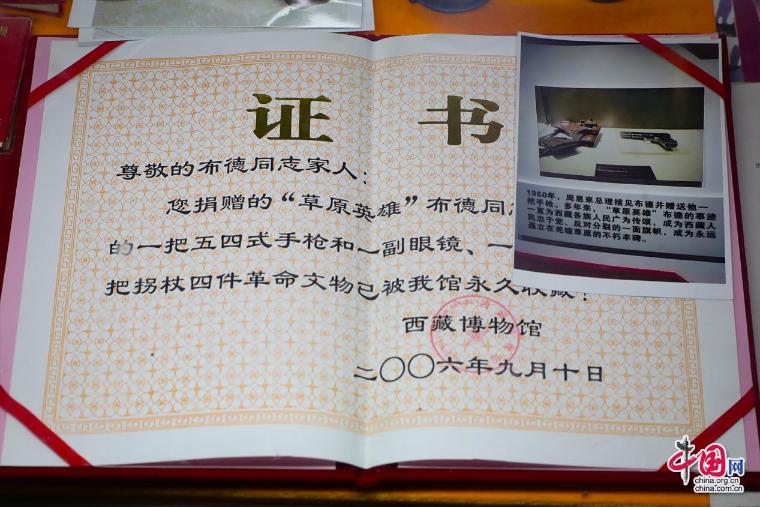 证书
尊敬的布德同志家人：
您捐赠的“草原英雄”布德同志
的一把五四式手枪和一副眼镜、一
把拐杖四件革命文物已被我馆永久收藏！
西藏博物馆
二〇〇六年九月十日
1960年，周恩来总理接见布德并赠送他一
把手枪。多年来，“草原英雄”布德的事迹
一直为西藏各族人民广为传颂，成为西藏人
民忠于党、反对分裂的一面旗帜，成为永远
矗立在羌塘草原的不朽丰碑。
中国网
china.org.cn
china.com.cn